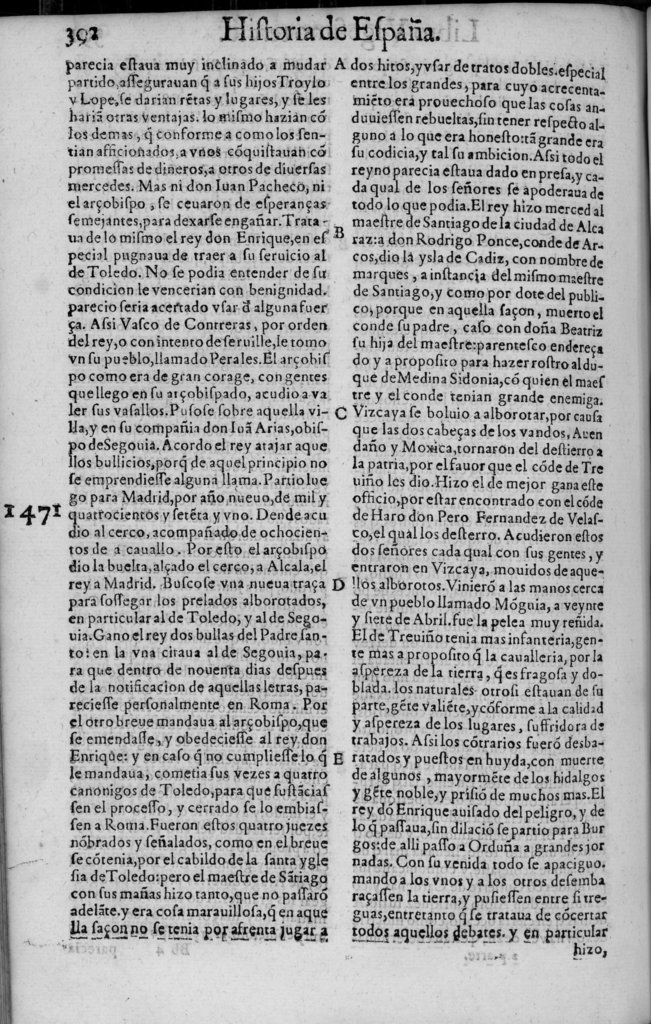 392 Historia de España.
parecia estaua muy inclinado a mudar
partido, assegurauan q̃ a sus hijos Troylo
y Lope, se darian rẽtas y lugares, y se les
hariã otras ventajas. lo mismo hazian cõ
los demas, q̃ conforme a como los sen-
tian afficionados, a vnos cõquistauan cõ
promessas de dineros, a otros de diuersas
mercedes. Mas ni don Iuan Pacheco, ni
el arçobispo, se ceuaron de esperanças
semejantes, para dexarse engañar. Trata-
ua de lo mismo el rey don Enrique, en es
pecial pugnaua de traer a su seruicio al
de Toledo. No se podia entender de su
condicion le vencerian con benignidad.
parecio seria acertado vsar d̃ alguna fuer
ça. Assi Vasco de Contreras, por orden
del rey, o con intento de seruille, le tomo
vn su pueblo, llamado Perales. El arçobis
po como era de gran corage, con gentes
que llego en su arçobispado, acudio a va
ler sus vasallos. Pusose sobre aquella vi-
lla, y en su compañia don Iuã Arias, obis-
po de Segouia. Acordo el rey atajar aque
llos bullicios, porq̃ de aquel principio no
se emprendiesse alguna llama. Partio lue
1471 go para Madrid, por año nueuo, de mil y
quatrocientos y setẽta y vno. Dende acu
dio al cerco, acompañado de ochocien-
tos de a cauallo. Por esto el arçobispo
dio la buelta, alçado el cerco, a Alcala, el
rey a Madrid. Buscose vna nueua traça
para sossegar los prelados alborotados,
en particular al de Toledo, y al de Sego-
uia. Gano el rey dos bullas del Padre san-
to: en la vna citaua al de Segouia, pa-
ra que dentro de nouenta dias despues
de la notificacion de aquellas letras, pa-
reciesse personalmente en Roma. Por
el otro breue mandaua al arçobispo, que
se emendasse, y obedeciesse al rey don
Enrique: y en caso q̃ no cumpliesse lo q̃
le mandaua, cometia sus vezes a quatro
canonigos de Toledo, para que sustãcias
sen el processo, y cerrado se lo embias-
sen a Roma. Fueron estos quatro juezes
nõbrados y señalados, como en el breue
se cõtenia, por el cabildo de la santa ygle
sia de Toledo: pero el maestre de Sãtiago
con sus mañas hizo tanto, que no passarõ
adelãte. y era cosa marauillosa, q̃ en aque
lla saçon no se tenia por afrenta jugar a
A dos hitos, y vsar de tratos dobles. especial
entre los grandes, para cuyo acrecenta-
miẽto era prouechoso que las cosas an-
duuiessen rebueltas, sin tener respecto al-
guno a lo que era honesto: tã grande era
su codicia, y tal su ambicion. Assi todo el
reyno parecia estaua dado en presa, y ca-
da qual de los señores se apoderaua de
todo lo que podia. El rey hizo merced al
maestre de Santiago de la ciudad de Alca
B raz: a don Rodrigo Ponce, conde de Ar-
cos, dio la ysla de Cadiz, con nombre de
marques, a instancia del mismo maestre
de Santiago, y como por dote del publi-
co, porque en aquella saçon, muerto el
conde su padre, caso con doña Beatriz
su hija del maestre: parentesco endereça
do y a proposito para hazer rostro al du-
que de Medina Sidonia, cõ quien el maes
tre y el conde tenian grande enemiga.
C Vizcaya se boluio a alborotar, por causa
que las dos cabeças de los vandos, Auen
daño y Moxica, tornaron del destierro a
la patria, por el fauor que el cõde de Tre
uiño les dio. Hizo el de mejor gana este
officio, por estar encontrado con el cõde
de Haro don Pero Fernandez de Velas-
co, el qual los desterro. Acudieron estos
dos señores cada qual con sus gentes, y
entraron en Vizcaya, mouidos de aque-
D llos alborotos. Vinierõ a las manos cerca
de vn pueblo llamado Mõguia, a veynte
y siete de Abril. fue la pelea muy reñida.
El de Treuiño tenia mas infanteria, gen-
te mas a proposito q̃ la caualleria, por la
aspereza de la tierra, q̃ es fragosa y do-
blada. los naturales otrosi estauan de su
parte, gẽte valiẽte, y cõforme a la calidad
y aspereza de los lugares, suffridora de
trabajos. Assi los cõtrarios fuerõ desba-
E ratados y puestos en huyda, con muerte
de algunos, mayormẽte de los hidalgos
y gẽte noble, y prisiõ de muchos mas. El
rey dõ Enrique auisado del peligro, y de
lo q̃ passaua, sin dilaciõ se partio para Bur
gos: de alli passo a Orduña a grandes jor
nadas. Con su venida todo se apaciguo.
mando a los vnos y a los otros desemba
raçassen la tierra, y pusiessen entre si tre-
guas, entretanto q̃ se trataua de cõcertar
todos aquellos debates. y en particular
hizo,